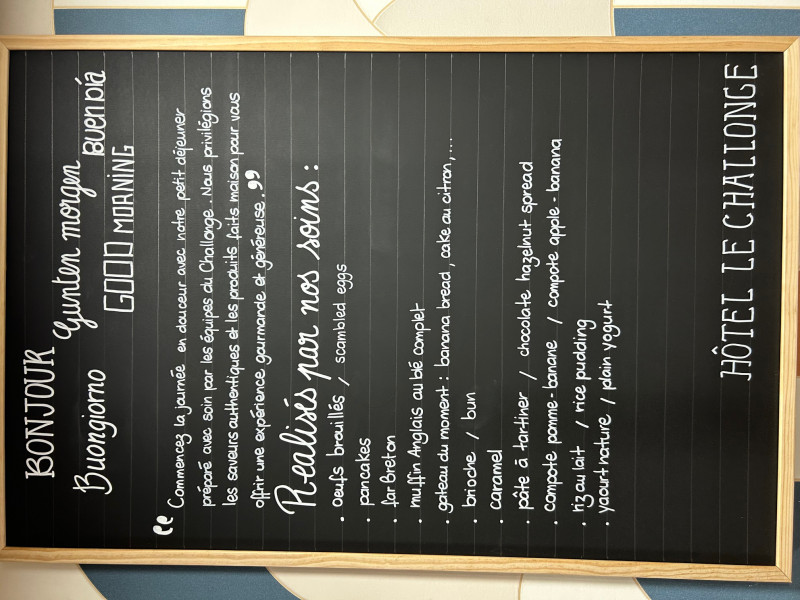 BONJOUR
Gunten morgen
Buongiorno
Buen día
GOOD MORNING
“ Commencez la journée en douceur avec notre petit déjeuner
préparé avec soin par les équipes du Challonge. Nous privilégions
les saveurs authentiques et les produits faits maison pour vous
offrir une expérience gourmande et généreuse. ”
Realisés par nos soins :
• oeufs brouillés / scambled eggs
• pancakes
• far Breton
• muffin Anglais au blé complet
• gateau du moment : banana bread, cake au citron,...
• brioche / bun
• caramel
• pâte à tartiner / chocolate hazelnut spread
• compote pomme-banane / compote apple-banana
• riz au lait / rice pudding
• yaourt nature / plain yogurt
HÔTEL LE CHALLONGE